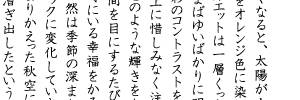 くなると、太陽が
をオレンジ色に染
エットは一層くっ
まばゆいばかりに
彩のコントラストを
上に惜しみなく注
のような輝きを
間を目にするたび
にいる幸福をか
然は季節の深ま
クに変化してい
りかえった秋空に
ぎ出したという